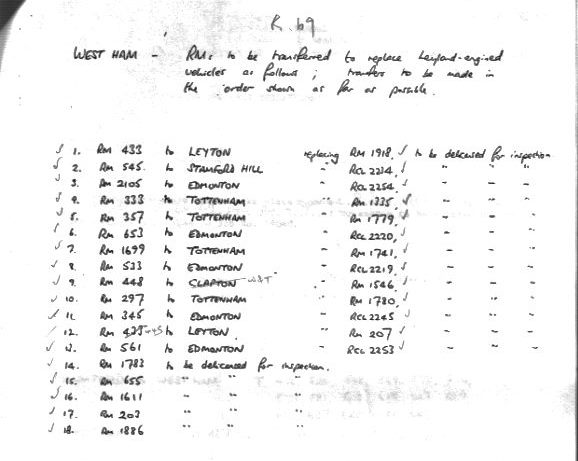 R.b9
WEST HAM - RMs to be transferred to replace Leyland-engined
vehicles as follows; transfers to be made in
the order shown as far as possible.
✓ 1. RM 433 to LEYTON replacing RM 1918, ✓ to be delicensed for inspection
✓ 2. RM 545. to STAMFORD HILL " RCL 2234 ✓ " " "
✓ 3. RM 2105 to EDMONTON " RCL 2254 ✓ " " "
✓ 4. RM 333 to TOTTENHAM " RM 1335 ✓ " " "
✓ 5. RM 357 to TOTTENHAM " RM 1779 ✓ " " "
✓ 6. RM 653 to EDMONTON " RCL 2220, ✓ " " "
✓ 7. RM 1699 to TOTTENHAM " RM 1741, ✓ " " "
✓ 8. RM 533 to EDMONTON " RCL 2219, ✓ " " "
✓ 9. RM 448 to CLAPTON " RM 1546, ✓ " " "
✓ 10. RM 297 to TOTTENHAM " RM 1780, ✓ " " "
✓ 11. RM 345 to EDMONTON " RCL 2245 ✓ " " "
✓ 12. RM to LEYTON " RM 207 ✓ " " "
✓ 13. RM 561 to EDMONTON " RCL 2253 ✓ " " "
✓ 14. RM 1783 to be delicensed for inspection.
✓ 15. RM 655 " " "
✓ 16. RM 1611 " " "
✓ 17. RM 203 " " "
✓ 18. RM 1886 " " "